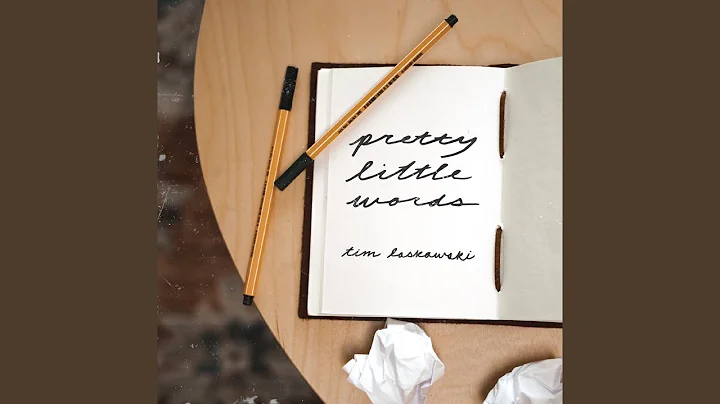 pretty
little
words
tim laskowski